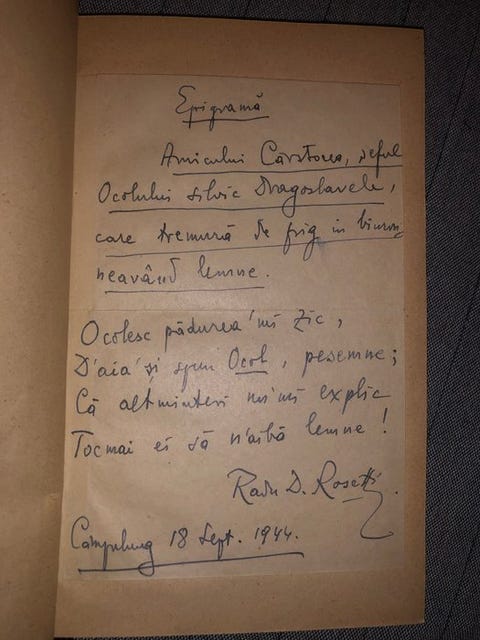 Epigramă
Amicului Cârstocea, șeful
Ocolului silvic Dragoslavele,
care tremură de frig in birou,
neavând lemne.
Ocolesc pădurea 'mi zic,
D'aia 'și spun Ocol, pesemne;
Că altminteri nu'mi explic
Tocmai ei să n'aibă lemne!
Radu D. Rosetti.
Câmpulung 18 Sept. 1944.